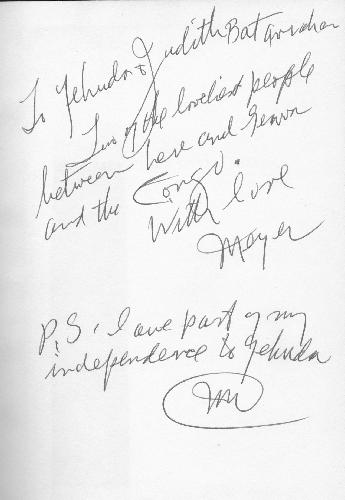 To Yehuda & Judith Bat
Two of the loveliest people
between here and
and the Congo.
With love
Mayer
P.S. I owe part of my
independence to Yehuda